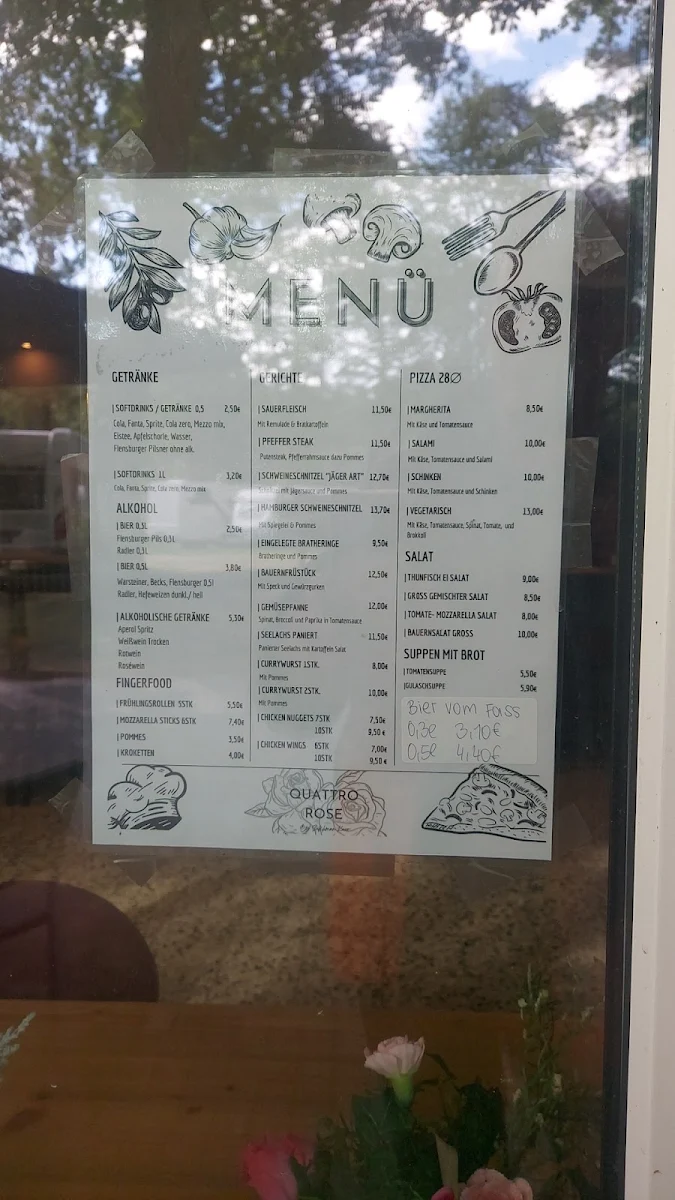 MENÜ
GETRÄNKE
| SOFTDRINKS / GETRÄNKE 0,5 2,50€
Cola, Fanta, Sprite, Cola zero, Mezzo mix,
Eistee, Apfelschorle, Wasser,
Flensburger Pilsner ohne alk.
| SOFTDRINKS 1L 3,20€
Cola, Fanta, Sprite, Cola zero, Mezzo mix
ALKOHOL
| BIER 0,3L 2,50€
Flensburger Pils 0,3l
Radler 0,3L
| BIER 0,5L 3,80€
Warsteiner, Becks, Flensburger 0,5l
Radler, Hefeweizen dunkl./ hell
| ALKOHOLISCHE GETRÄNKE 5,30€
Aperol Spritz
Weißwein Trocken
Rotwein
Roséwein
FINGERFOOD
| FRÜHLINGSROLLEN 5STK 5,50€
| MOZZARELLA STICKS 6STK 7,40€
| POMMES 3,50€
| KROKETTEN 4,00€
GERICHTE
| SAUERFLEISCH 11,50€
Mit Remulade & Bratkartoffeln
| PFEFFER STEAK 11,50€
Putensteak, Pfefferrahmsauce dazu Pommes
| SCHWEINESCHNITZEL "JÄGER ART" 12,70€
Schnitzel mit Jägersauce und Pommes
| HAMBURGER SCHWEINESCHNITZEL 13,70€
Mit Spiegelei & Pommes
| EINGELEGTE BRATHERINGE 9,50€
Bratheringe und Pommes
| BAUERNFRÜSTÜCK 12,50€
Mit Speck und Gewürzgurken
| GEMÜSEPFANNE 12,00€
Spinat, Broccoli und Paprika in Tomatensauce
| SEELACHS PANIERT 11,50€
Panierter Seelachs mit Kartoffeln Salat
| CURRYWURST 1STK. 8,00€
Mit Pommes
| CURRYWURST 2STK. 10,00€
Mit Pommes
| CHICKEN NUGGETS 7STK 7,50€
10STK 9,50 €
| CHICKEN WINGS 6STK 7,00€
10STK 9,50 €
PIZZA 28Ø
| MARGHERITA 8,50€
Mit Käse und Tomatensauce
| SALAMI 10,00€
Mit Käse, Tomatensauce und Salami
| SCHINKEN 10,00€
Mit Käse, Tomatensauce und Schinken
| VEGETARISCH 13,00€
Mit Käse, Tomatensauce, Spinat, Tomate, und
Brokkoli
SALAT
| THUNFISCH EI SALAT 9,00€
| GROSS GEMISCHTER SALAT 8,50€
| TOMATE- MOZZARELLA SALAT 8,00€
| BAUERNSALAT GROSS 10,00€
SUPPEN MIT BROT
| TOMATENSUPPE 5,50€
|GULASCHSUPPE 5,90€
Bier vom Fass
0,3l 3,10€
0,5l 4,40€
QUATTRO
ROSE